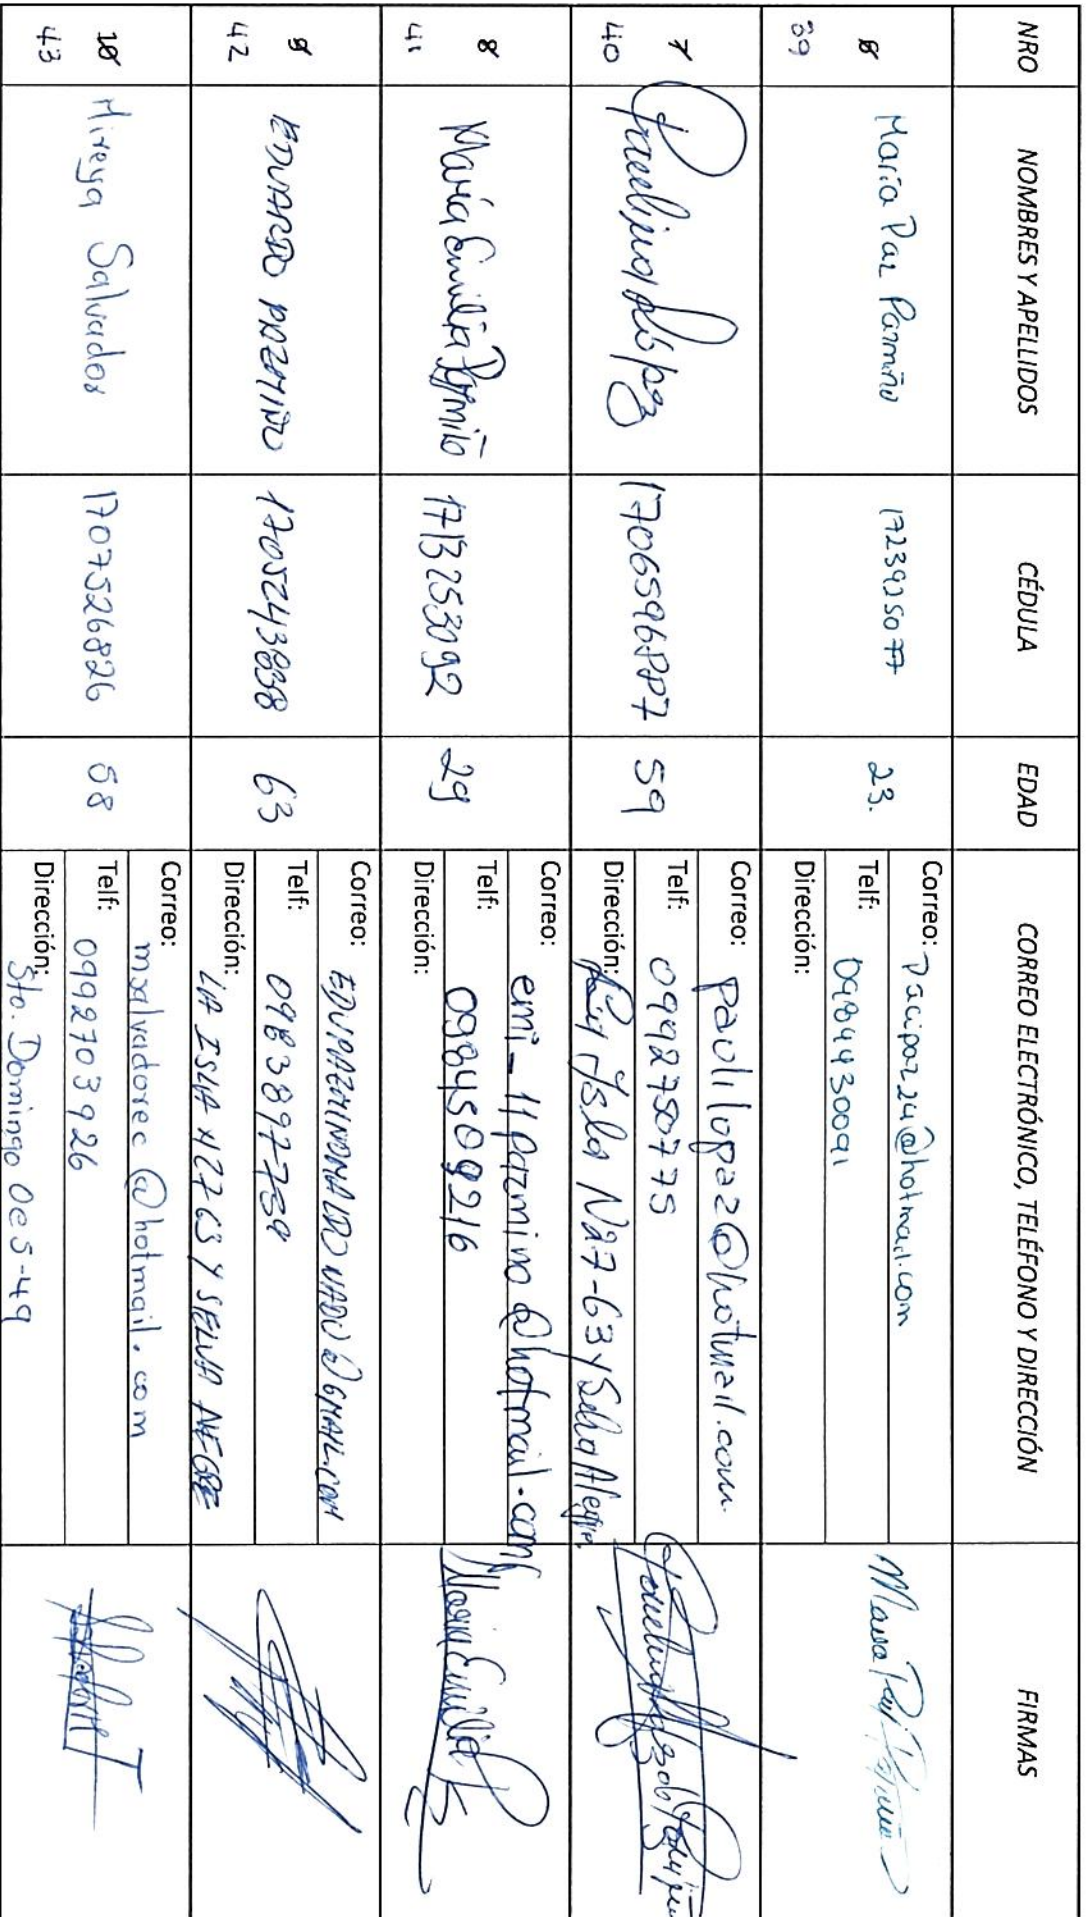 NRO NOMBRES Y APELLIDOS CÉDULA EDAD CORREO ELECTRÓNICO, TELÉFONO Y DIRECCIÓN FIRMAS
6
39
María Paz Pazmiño
1723925077
23.
Correo: Pacipaz24@hotmail.com
Telf: 0984430091
Dirección:
María Paz Pazmiño
7
40
Paulina López
59
Correo: paulilopez2@hotmail.com.
Telf: 0992750775
Dirección: La Isla N27-63 y Selva Alegre
8
41
María Emilia Pazmiño
1713253092
29
Correo: emi_11pazmino@hotmail.com
Telf: 0984509216
Dirección:
María Emilia
9
42
EDUARDO PAZMIÑO
1705243838
63
Correo:
Telf:
Dirección: LA ISLA N27-63 Y SELVA ALEGRE
10
43
Mireya Salvador
1707526826
58
Correo: msalvadorec@hotmail.com
Telf: 0992703926
Dirección: Sto. Domingo Oe5-49